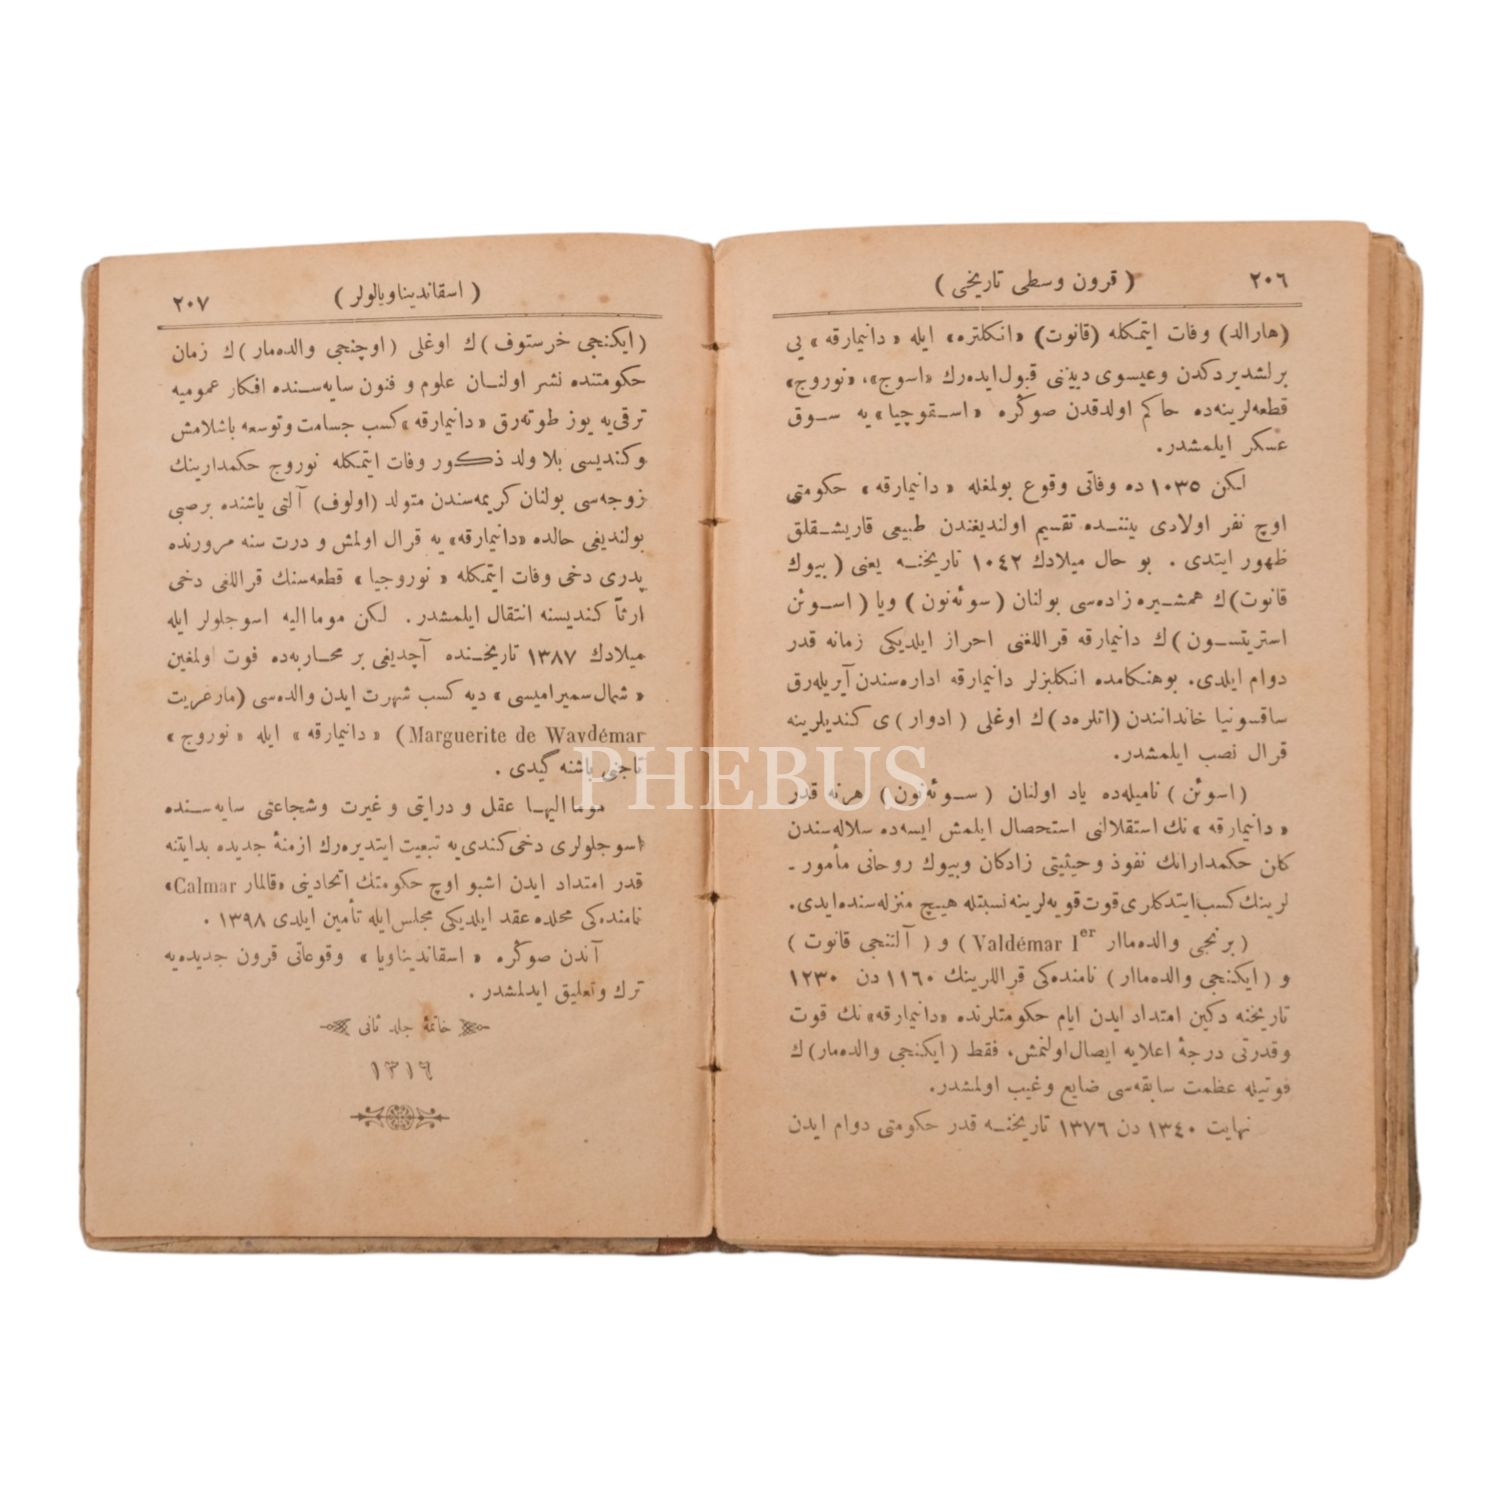 ٢٠٦
( قرون وسطى تاريخى )
(هارالد) وفات ايتمكله (قانوت) «انكلتره» ايله «دانيمارقه» يى
برلشديردكدن وعيسوى دينى قبول ايده‌رك «اسوج»، «نوروج»
قطعه‌لرينه‌ده حاكم اولدقدن صوكره «استموچيا» يه سوق
عسكر ايلمشدر.
لكن ١٠٣٥ ده وفاتى وقوع بولمغله «دانيمارقه» حكومتى
اوچ نفر اولادى بيننده تقسيم اولنديغندن طبيعى قاريشقلق
ظهور ايتدى . بو حال ميلادك ١٠٤٢ تاريخنه يعنى ( بيوك
قانوت)ك همشيره زاده‌سى بولنان (سوئه‌نون) ويا (اسوئن
استريتسون)ك دانيمارقه قراللغنى احراز ايلديكى زمانه قدر
دوام ايلدى. بوهنكامده انكليزلر دانيمارقه اداره‌سندن آيريله‌رق
ساقسونيا خانداندن (اتلره‌د)ك اوغلى (ادوار)ى كنديلرينه
قرال نصب ايلمشدر.
(اسوئن) ناميله‌ده ياد اولنان (سوئه‌نون) هرنه قدر
«دانيمارقه» نك استقلالنى استحصال ايلمش ايسه‌ده سلاله‌سندن
كلن حكمدارانك نفوذ وحيثيتى زادكان وبيوك روحانى مأمور-
لرينك كسب ايتدكلرى قوت قويه‌لرينه نسبتله هيچ منزله‌سنده ايدى.
(برنجى والده‌مار Valdémar Ier) و (آلتنجى قانوت)
و (ايكنجى والده‌مار) نامنده‌كى قراللرينك ١١٦٠ دن ١٢٣٠
تاريخنه دكين امتداد ايدن ايام حكومتلرنده «دانيمارقه» نك قوت
وقدرتى درجۀ اعلايه ايصال اولنمش، فقط (ايكنجى والده‌مار)ك
فوتيله عظمت سابقه‌سى ضايع وغيب اولمشدر.
نهايت ١٣٤٠ دن ١٣٧٦ تاريخنه قدر حكومتى دوام ايدن
٢٠٧
( اسقانديناويالولر )
(ايكنجى خرستوف)ك اوغلى (اوچنجى والده‌مار)ك زمان
حكومتنده نشر اولنان علوم و فنون سايه‌سنده افكار عموميه
ترقى‌يه يوز طوته‌رق «دانيمارقه» كسب جسامت وتوسعه باشلامش
وكنديسى بلا ولد ذكور وفات ايتمكله نوروج حكمدارينك
زوجه‌سى بولنان كريمه‌سندن متولد (اولوف) آلتى ياشنده برصبى
بولنديغى حالده «دانيمارقه» يه قرال اولمش و درت سنه مرورنده
پدرى دخى وفات ايتمكله «نوروجيا» قطعه‌سنك قراللغى دخى
ارثاً كنديسنه انتقال ايلمشدر. لكن مومااليه اسوجلولر ايله
ميلادك ١٣٨٧ تاريخنده آچديغى بر محاربه‌ده فوت اولمغين
«شمال سميراميسى» ديه كسب شهرت ايدن والده‌سى (مارغريت
Marguerite de Wavdémar) «دانيمارقه» ايله «نوروج»
تاجنى باشنه گيدى .
مومااليها عقل و درايتى و غيرت وشجاعتى سايه‌سنده
اسوجلولرى دخى كندى‌يه تبعيت ايتديره‌رك ازمنۀ جديده بدايتنه
قدر امتداد ايدن اشبو اوچ حكومتك اتحادينى «قالمار Calmar»
نامنده‌كى محلده عقد ايلديكى مجلس ايله تأمين ايلدى ١٣٩٨ .
آندن صوكره «اسقانديناويا» وقوعاتى قرون جديده‌يه
ترك وتعليق ايدلمشدر .
خاتمۀ جلد ثانى
١٣١٦
PHEBUS